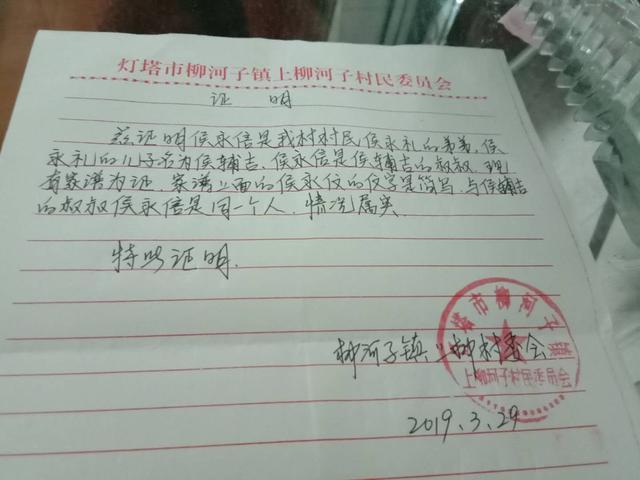 灯塔市柳河子镇上柳河子村民委员会
证 明
兹证明侯永信是我村村民侯永礼的弟弟，侯
永礼的儿子名为侯辅吉，侯永信是侯辅吉的叔叔，现
有家谱为证，家谱上面的侯永仪的仪字是简写，与侯辅吉
的叔叔侯永信是同一个人，情况属实
特此证明.
柳河子镇上柳村委会
塔市柳河子镇
上柳河子村民委员会
2019.3.29